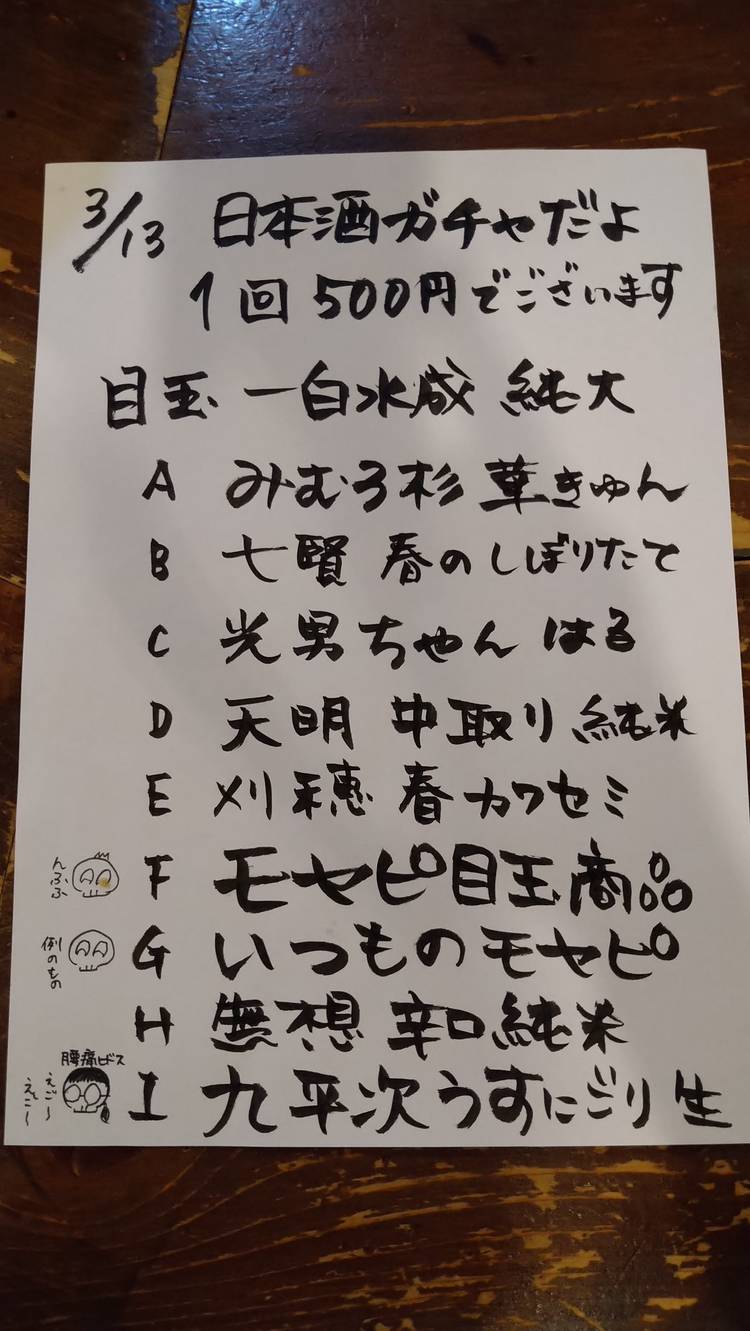 3/13 日本酒ガチャだよ
1回 500円でございます
目玉 一白水成 純大
A みむろ杉 華きゅん
B 七賢 春のしぼりたて
C 光男ちゃん はる
D 天明 中取り 純米
E 刈穂 春カワセミ
んふふ F モヤピ目玉商品
例のもの G いつものモヤピ
H 無想 辛口純米
腰痛ビドス
えご〜
えご〜
I 九平次うすにごり 生